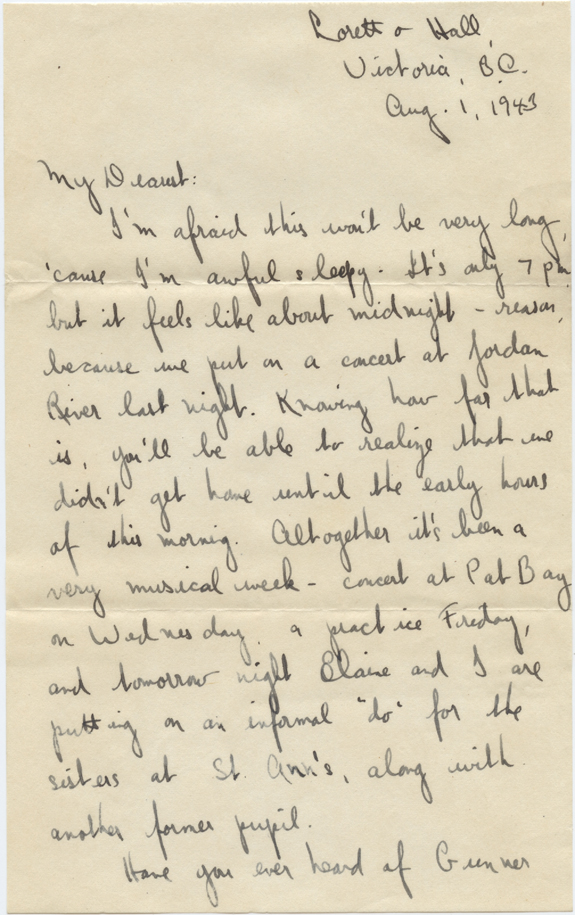 Loretto Hall,
Victoria, B.C.
Aug. 1, 1943
My Dearest:
I'm afraid this won't be very long,
'cause I'm awful sleepy. It's only 7 pm,
but it feels like about midnight - reason,
because we put on a concert at Jordan
River last night. Knowing how far that
is, you'll be able to realize that we
didn't get home until the early hours
of this morning. Altogether it's been a
very musical week - concert at Pat Bay
on Wednesday, a practice Friday,
and tomorrow night Elaine and I are
putting on an informal "do" for the
sisters at St. Ann's, along with
another former pupil.
Have you ever heard of Gunner